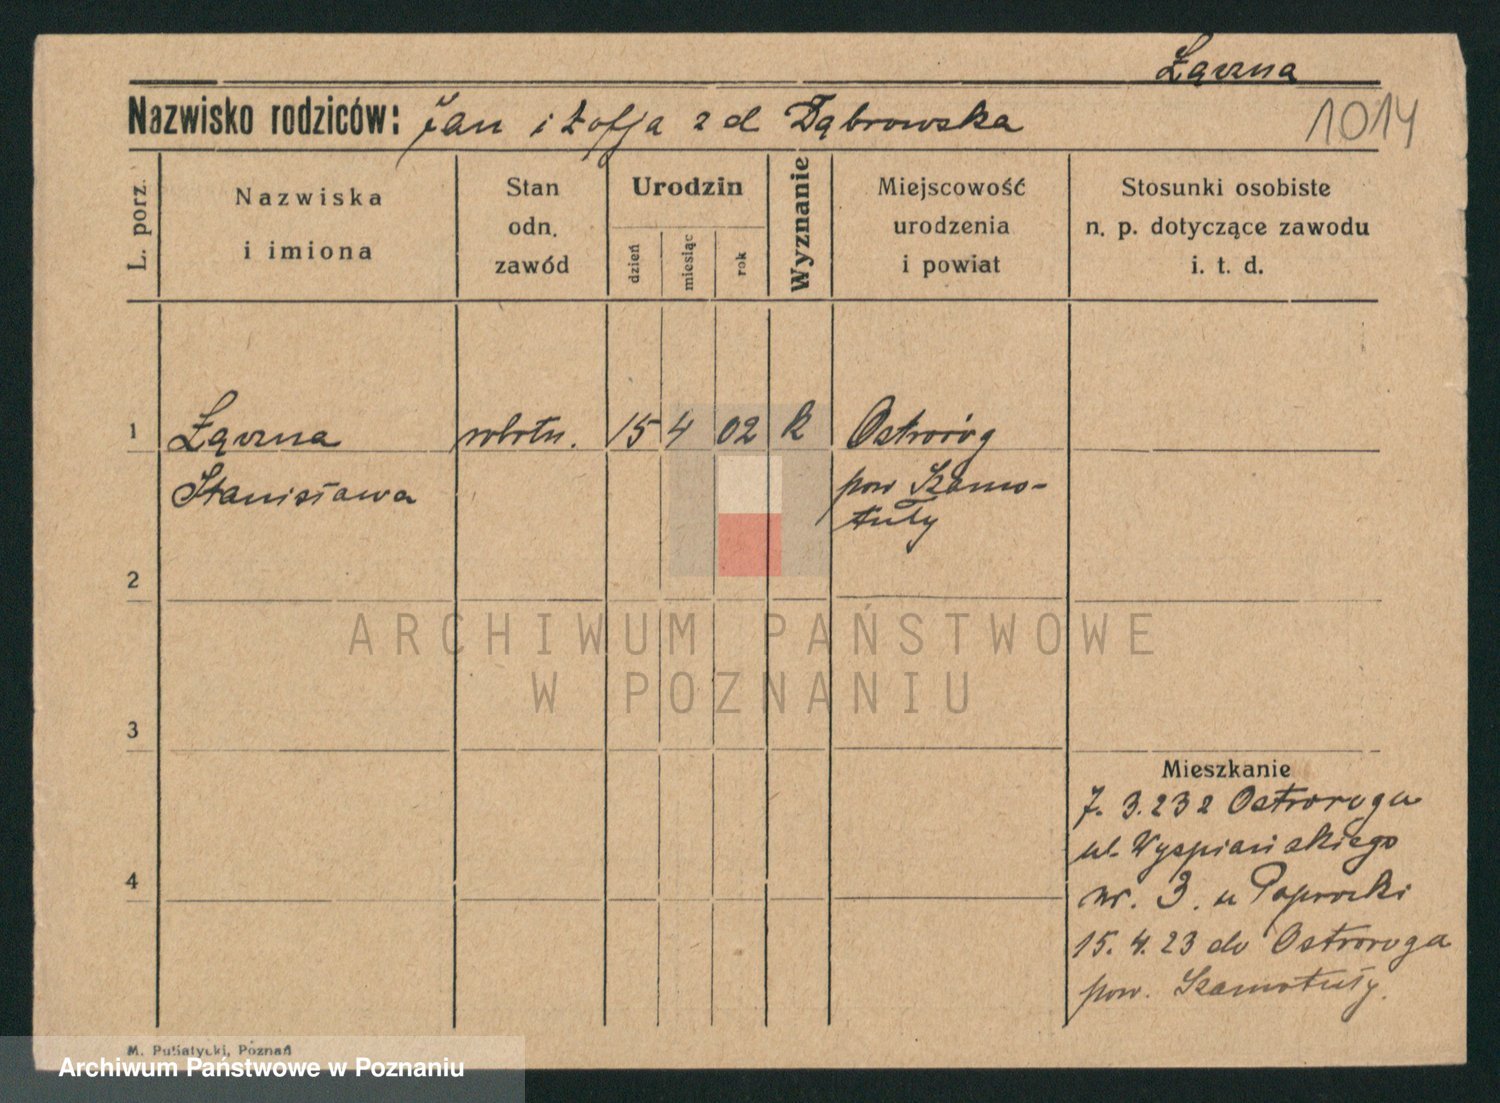 Łączna
Nazwisko rodziców: Jan i Zofja z d Dąbrowska
1014
L. porz.
Nazwiska
i imiona
Stan
odn.
zawód
Urodzin
dzień
miesiąc
rok
Wyznanie
Miejscowość
urodzenia
i powiat
Stosunki osobiste
n. p. dotyczące zawodu
i. t. d.
1 Łączna robotn. 15 4 02 k Ostroróg
Stanisława pow Szamo-
tuły
2
ARCHIWUM PAŃSTWOWE
W POZNANIU
3
Mieszkanie
7. 3. 23 z Ostroroga
ul. Wyspiańskiego
4
nr. 3. u Paprocki
15. 4. 23 do Ostroroga
pow. Szamotuły.
M. Putiatycki, Poznań
Archiwum Państwowe w Poznaniu